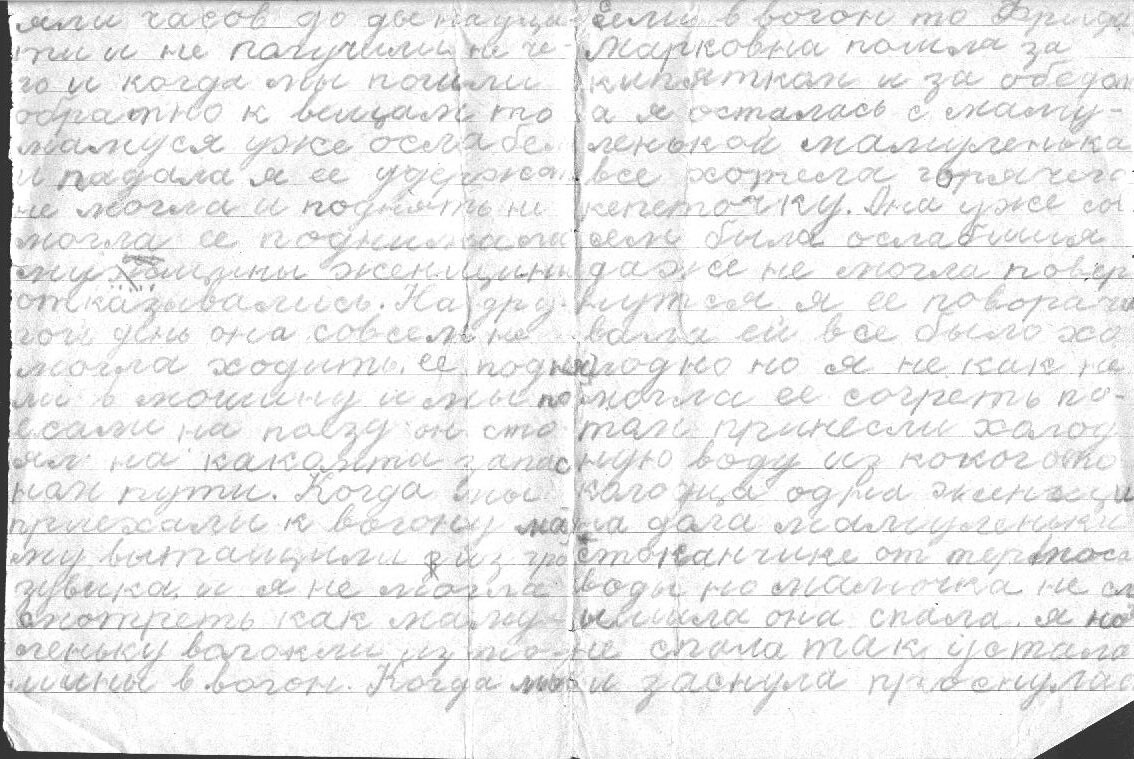 яли часов до двенадца-
ти и не получили не че-
го и когда мы пошли
обратно к вещам то
мамуся уже ослабе
и падала я ее удержать
не могла и поднять не
могла ее поднимали
мужщины женщины
отказывались. На дру-
гой день она совсем не
могла ходить. ее подня
ли в мошину и мы по
ехали на поезд он сто
ял на какомта запас
ном пути. Когда мы
приехали к вогону ма
му вытащили из гро
зувика и я не могла
смотреть как маму-
леньку валокли из мо-
шины в вогон. Когда мы
сели в вогон то Фрида
Марковна пошла за
кипяткам и за обедом
а я осталась с маму-
ленькой мамуленька
все хотела горячего
кепеточку. Она уже со
сем была ослабшия
даже не могла повер
нутся я ее поворачи
вала ей все было хо
лодно но я не как не
могла ее согреть по-
том принесли халод
ную воду из кокогото
калодца одна женщи
на дала мамуленьки
стоканчике от термоса
воды но мамочка не сл
ышила она спала. я но
не спала так устала
и заснула проснулас